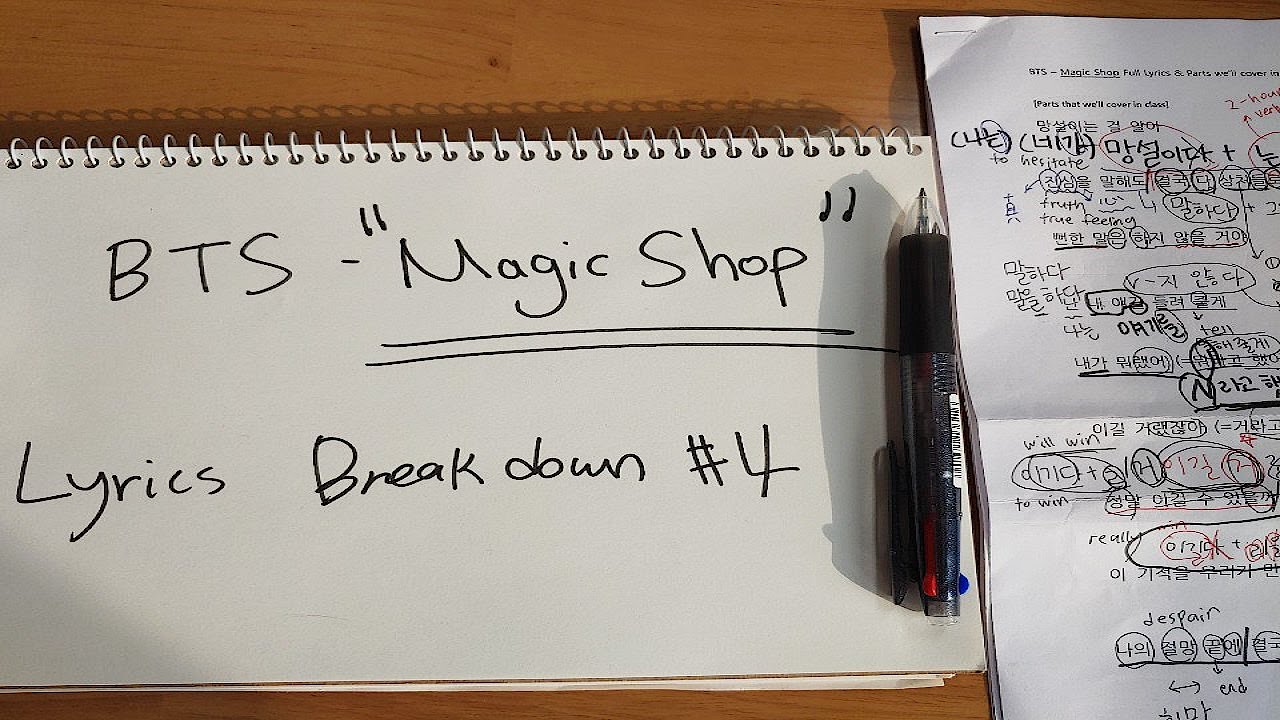 BTS - "Magic Shop"
Lyrics Breakdown #4
BTS – Magic Shop Full Lyrics & Parts we'll cover in
[Parts that we'll cover in class]
2-hou
망설이는 걸 알아
(나는) (네가) 망설이다 + 는
to hesitate
진심을 말해도 결국 다 상처들로
真 truth 말하다 +
true feeling
뻔한 말은 하지 않을 거야
말하다 -지 않다
말을 하다
난 내 얘길 들려 줄게
나는 얘기를 tell
해줄게
내가 뭐랬어
라고 했
이길 거랬잖아 (=거라고
will win
이기다 + 이길 거
to win 정말 이길 수 있을까
really win
이기다 +
이 기적을 우리가 만
despair
나의 절망 끝에 결국
↔ end
희망